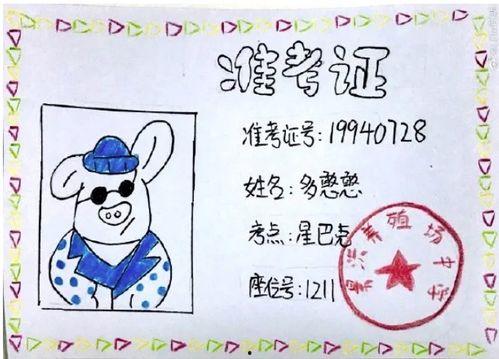 准考证
准考证号:19940728
姓名:多憨憨
考点:星巴克
座位号:1211
养殖场中